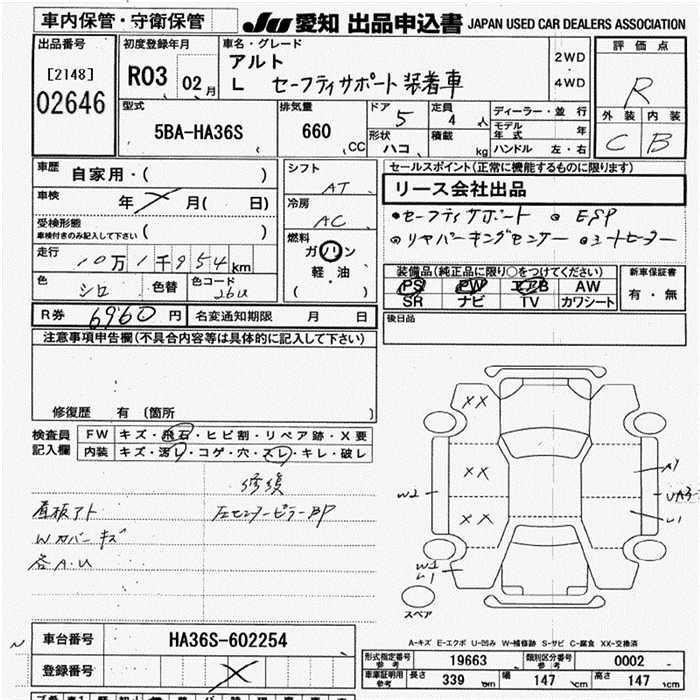 車内保管・守衛保管
JU 愛知 出品申込書 JAPAN USED CAR DEALERS ASSOCIATION
出品番号
[2148]
02646
初度登録年月
R03 02月
車名・グレード
アルト
L セーフティサポート装着車
2WD
・
4WD
評価点
R
外装 内装
C B
型式
5BA-HA36S
排気量
660 CC
ドア 5
形状 ハコ
定員 4 人
積載 kg
ディーラー・並行
モデル年式 年
ハンドル 左・右
車歴
自家用・( )
車検 年 月( 日)
受検形態
車検付きのみ記入して下さい ( )
走行
10万1千954km
色 シロ 色替 色コード 26U
シフト
AT
冷房
AC
燃料
ガソリン
軽・油
( )
セールスポイント(正常に機能するものに限ります)
リース会社出品
●セーフティサポート ●ESP
●リヤパーキングセンサー ●シートヒーター
装備品(純正品に限り○をつけてください)
PS PW エアB AW
SR ナビ TV カワシート
新車保証書
有・無
後日品
R券 6960円 名変通知期限 月 日
注意事項申告欄(不具合内容等は具体的に記入して下さい)
修復歴 有 〔箇所 〕
検査員
記入欄
FW キズ・飛石・ヒビ割・リペア跡・X要
内装 キズ・汚レ・コゲ・穴・スレ・キレ・破レ
修復
看板アト 左センターピラーBP
Wカバーキズ
各A.U
XX
XX
XX
A1
W2
UA3
U1
W1
U1
スペア
A-キズ E-エクボ U-凹み W-補修跡 S-サビ C-腐食 XX-交換済
車台番号 HA36S-602254
登録番号
形式指定番号
参考
19663
類別区分番号
参考
0002
車庫証明用
参考
長さ 339 cm 幅 147 cm 高さ 147 cm